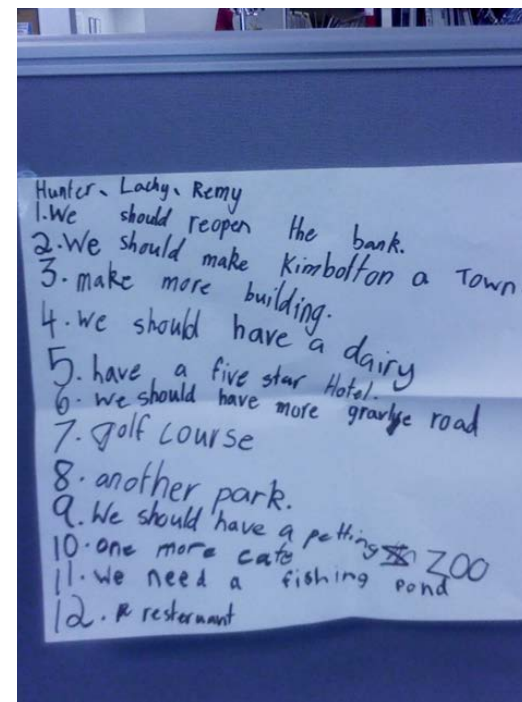 Hunter, Lachy, Remy
1. We should reopen the bank.
2. We should make Kimbolton a Town
3. make more building.
4. we should have a dairy
5. have a five star Hotel.
6. we should have more road
7. golf course
8. another park.
9. We should have a petting ZOO
10. one more cafe
11. we need a fishing pond
12. A resternant